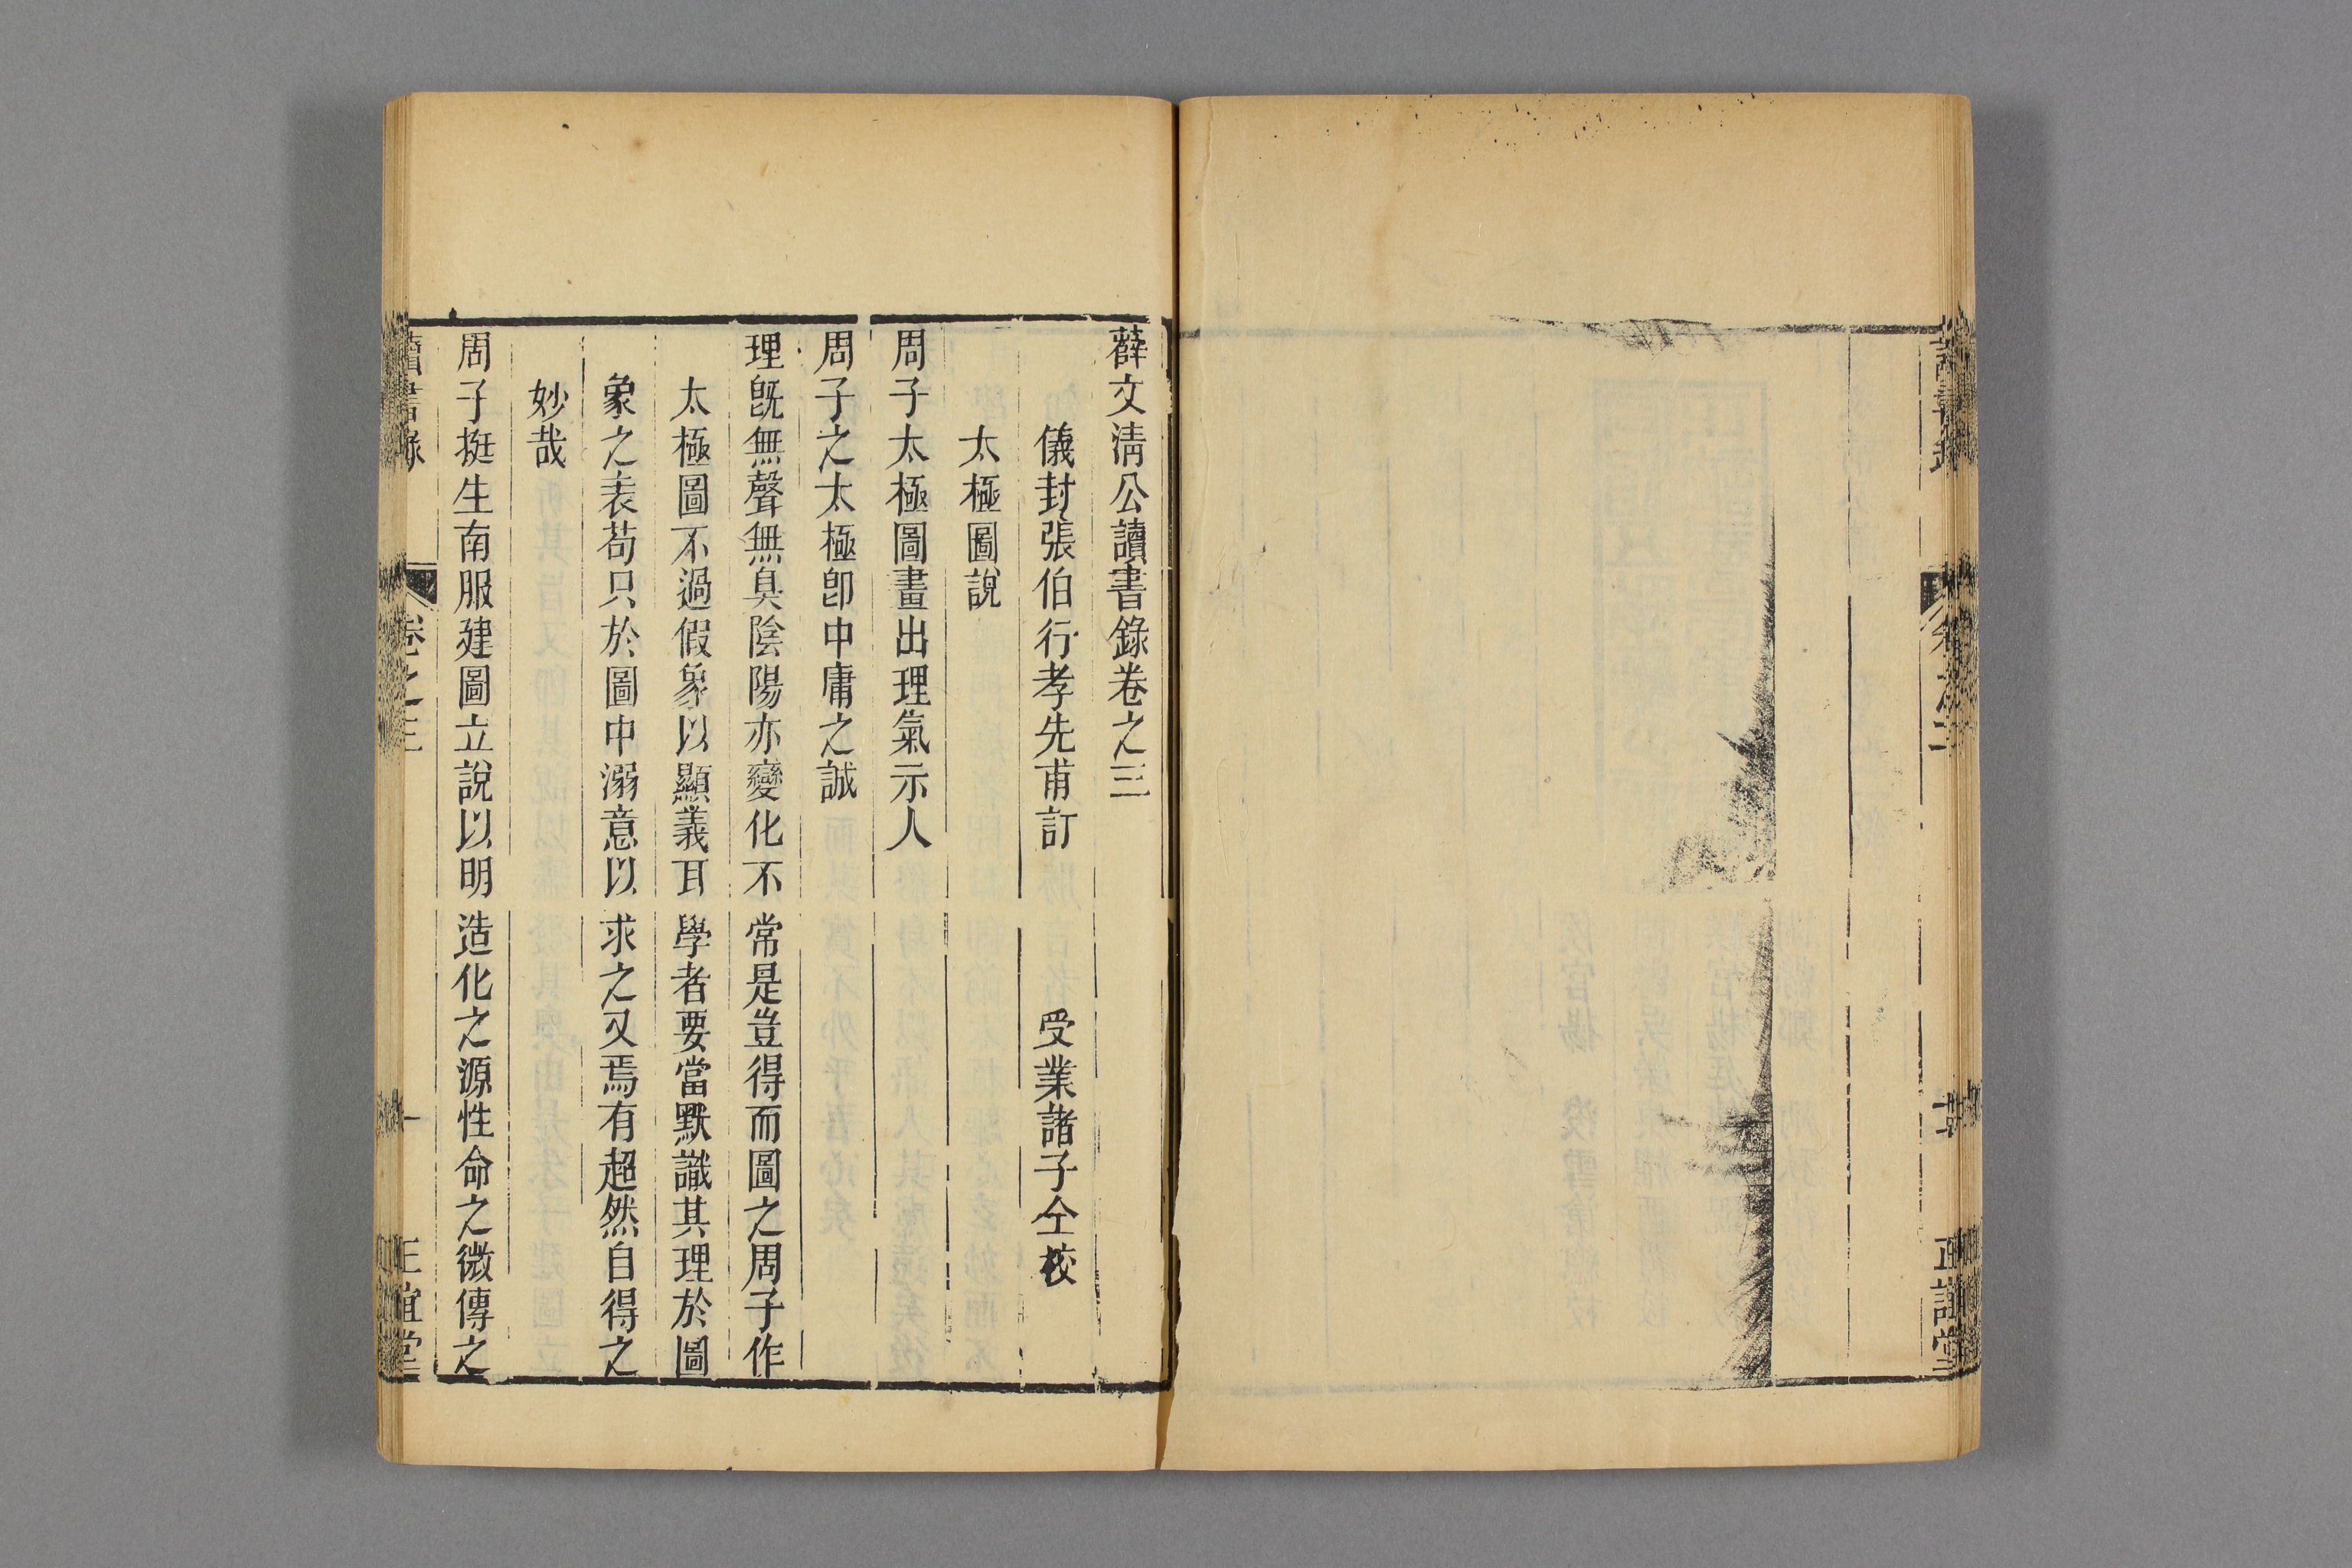 薛文淸公讀書錄卷之三
儀封張伯行孝先甫訂　受業諸子仝校
太極圖說
周子太極圖畫出理氣示人
周子之太極卽中庸之誠
理旣無聲無臭陰陽亦變化不常是豈得而圖之周子作
太極圖不過假象以顯義耳學者要當默識其理於圖
象之表苟只於圖中溺意以求之又焉有超然自得之
妙哉
周子挺生南服建圖立說以明造化之源性命之微傳之
讀書錄　卷之三　一　正誼堂